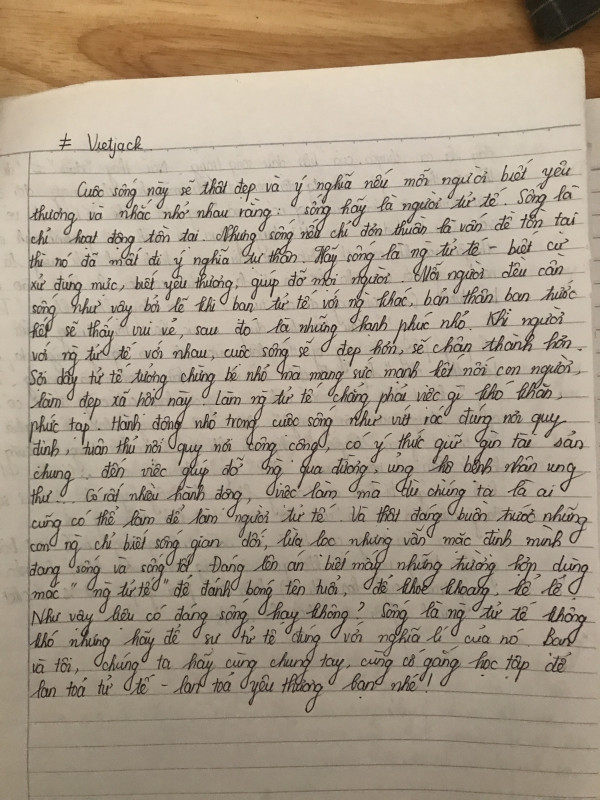 # Vietjack
Cuộc sống này sẽ thật đẹp và ý nghĩa nếu mỗi người biết yêu
thương và nhắc nhở nhau rằng: sống hãy là người tử tế. Sống là
chỉ hoạt động tồn tại. Nhưng sống nếu chỉ đơn thuần là vấn đề tồn tại
thì nó đã mất đi ý nghĩa tự thân. Hãy sống là ng tử tế - biết cư
xử đúng mực, biết yêu thương, giúp đỡ mọi người. Mỗi người đều cần
sống như vậy bởi lẽ khi bạn tử tế với ng khác, bản thân bạn trước
hết sẽ thấy vui vẻ, sau đó là những hạnh phúc nhỏ. Khi người
với ng tử tế với nhau, cuộc sống sẽ đẹp hơn, sẽ chân thành hơn.
Sợi dây tử tế tưởng chừng bé nhỏ mà mang sức mạnh kết nối con người,
làm đẹp xã hội này. Làm ng tử tế chẳng phải việc gì khó khăn,
phức tạp. Hành động nhỏ trong cuộc sống như vứt rác đúng nơi quy
định, tuân thủ nội quy nơi công cộng, có ý thức giữ gìn tài sản
chung.. đến việc giúp đỡ ng qua đường, ủng hộ bệnh nhân ung
thư... Có rất nhiều hành động, việc làm mà dù chúng ta là ai
cũng có thể làm để làm người tử tế. Và thật đáng buồn trước những
con ng chỉ biết sống gian dối, lừa lọc nhưng vẫn mặc định mình
đang sống và sống tốt. Đáng lên án biết mấy những trường hợp dùng
mác "ng tử tế" để đánh bóng tên tuổi, để khoe khoang, kể lể.
Như vậy liệu có đáng sống hay không? Sống là ng tử tế không
khó nhưng hãy để sự tử tế đúng với nghĩa lí của nó. Bạn
và tôi, chúng ta hãy cùng chung tay, cùng cố gắng học tập để
lan toả tử tế - lan toả yêu thương bạn nhé!